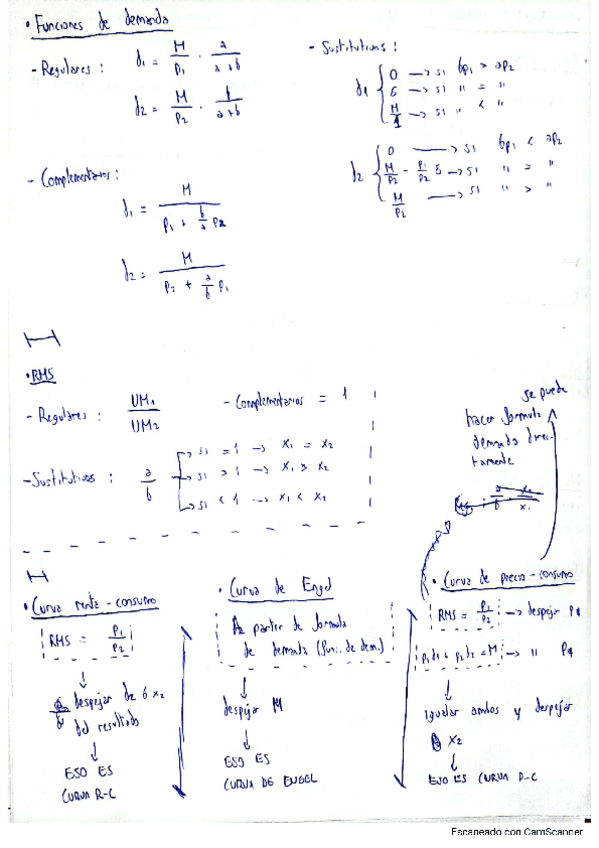 • Funciones de demanda
- Regulares : d1 = M/P1 · a/a+b
d2 = M/P2 · b/a+b
- Sustitutivos :
d1 { 0 → si bp1 > ap2
→ si " = "
→ si " < "
d2 { 0 → si bp1 < ap2
M/P2 - P1/P2 → si " = "
M/P2 → si " > "
- Complementarios :
d1 = M / P1 + b/a P2
d2 = M / P2 + a/b P1
• RMS
- Regulares : UM1/UM2
- Complementarios = 1
- Sustitutivos : a/b
→ si = 1 → x1 = x2
→ si > 1 → x1 > x2
→ si < 1 → x1 < x2
se puede
hacer formula
demanda direc-
tamente
• Curva renta - consumo
RMS = P1/P2
↓
despejar d2 ó x2
del resultado
↓
ESO ES
CURVA R-C
• Curva de Engel
A partir de formula
de demanda (func. de dem.)
↓
despejar M
↓
ESO ES
CURVA DE ENGEL
• Curva de precio - consumo
RMS = P1/P2 → despejar P1
P1d1 + P2d2 = M → " P1
↓
igualar ambos y despejar
x2
↓
ESO ES CURVA P-C
Escaneado con CamScanner